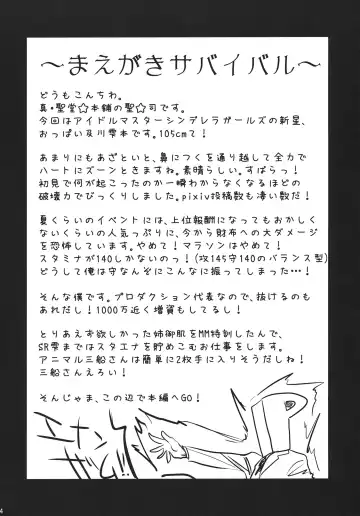 ～まえがきサバイバル～
どうもこんちわ。
真・聖堂☆本舗の聖☆司です。
今回はアイドルマスターシンデレラガールズの新星、
おっぱい及川雫本です。105cmて！
あまりにもあざといと、鼻につくを通り越して全力で
ハートにズーンときますね。素晴らしい。すばらっ！
初見で何が起こったのか一瞬わからなくなるほどの
破壊力でびっくりしました。pixiv投稿数も凄い数だ！
夏くらいのイベントには、上位報酬になってもおかしく
ないくらいの人気っぷりに、今から財布への大ダメージ
を恐怖しています。やめて！マラソンはやめて！
スタミナが140しかないのっ！（攻145守140のバランス型）
どうして俺は守なんぞにこんなに振ってしまった…！
そんな僕です。プロダクション代表なので、抜けるのも
あれだし！1000万近く増資もしてるし！
とりあえず欲しかった姉御肌をMM特訓したんで、
SR雫まではスタエナを貯めこむお仕事をします。
アニマル三船さんは簡単に2枚手に入りそうだしね！
三船さんえろい！
そんじゃま、この辺で本編へGO！
エナジー
4